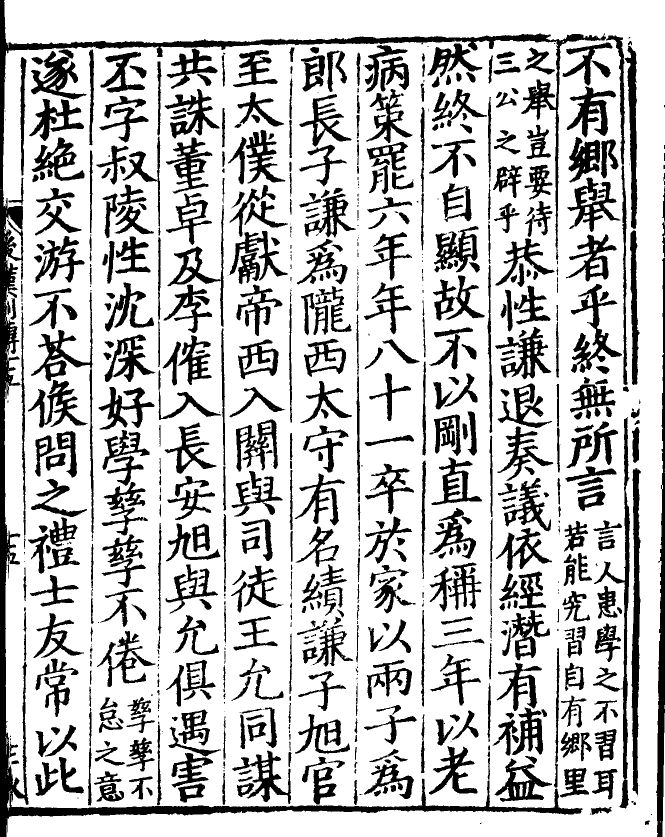 不有鄉舉者乎終無所言言人患學之不習耳若能究習自有鄉里
之舉豈要待三公之辟乎恭性謙退奏議依經潛有補益
然終不自顯故不以剛直爲稱三年以老
病策罷六年年八十一卒於家以兩子爲
郎長子謙爲隴西太守有名績謙子旭官
至太僕從獻帝西入關與司徒王允同謀
共誅董卓及李傕入長安旭與允俱遇害
丕字叔陵性沈深好學孳孳不倦孳孳不怠之意
遂杜絕交游不荅候問之禮士友常以此